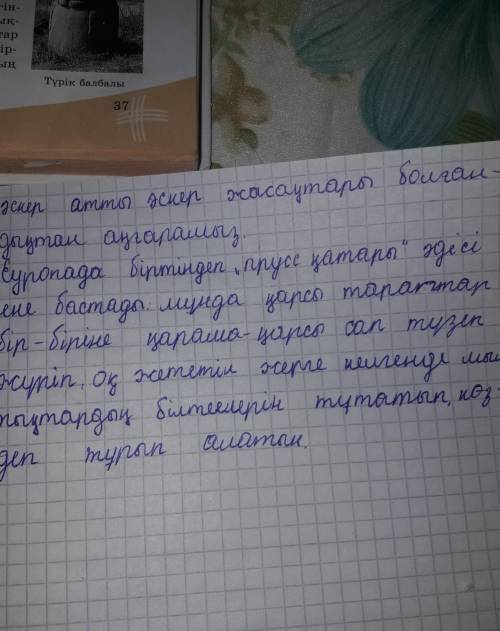 гін-
ық-
тар
ір-
ың
Түрік балбалы
37
әскер атты әскер жасақтары болған-
дықтан аңғарамыз.
Еуропада біртіндеп „прусс қатары" әдісі
ене бастады. мұнда қарсы тараптар
бір-біріне қарама-қарсы сап түзеп
жүріп, оқ жететін жерге келгенде мыл
тықтардың білтелерін тұтатып, көз-
деп тұрып алатын.